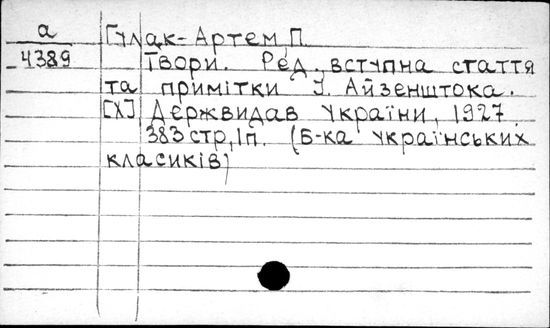 а
4389
Гулак-Артем П.
Твори. Ред., вступна стаття
та примітки І. Айзенштока.
[Х] Держвидав України, 1927.
383 стр, 1 п. (Б-ка українських
класиків)